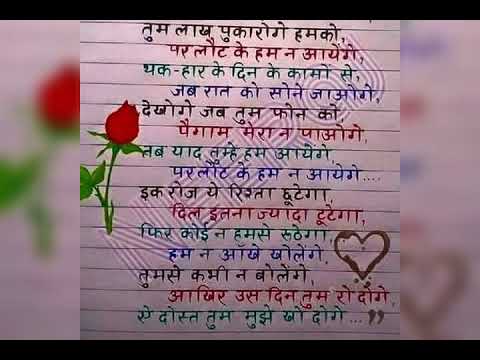 तुम लाख पुकारोगे हमको,
पर लौट के हम न आयेंगे,
थक-हार के दिन के कामों से,
जब रात को सोने जाओगे,
देखोगे जब तुम फोन को,
पैगाम मेरा न पाओगे,
तब याद तुम्हे हम आयेंगे,
पर लौट के हम न आयेगे....
इक रोज ये रिश्ता छूटेगा,
दिल इतना ज्यादा टूटेगा,
फिर कोई न हमसे रूठेगा,
हम न आँखे खोलेंगे,
तुमसे कभी न बोलेंगे,
आखिर उस दिन तुम रो दोगे,
ऐ दोस्त तुम मुझे खो दोगे..."